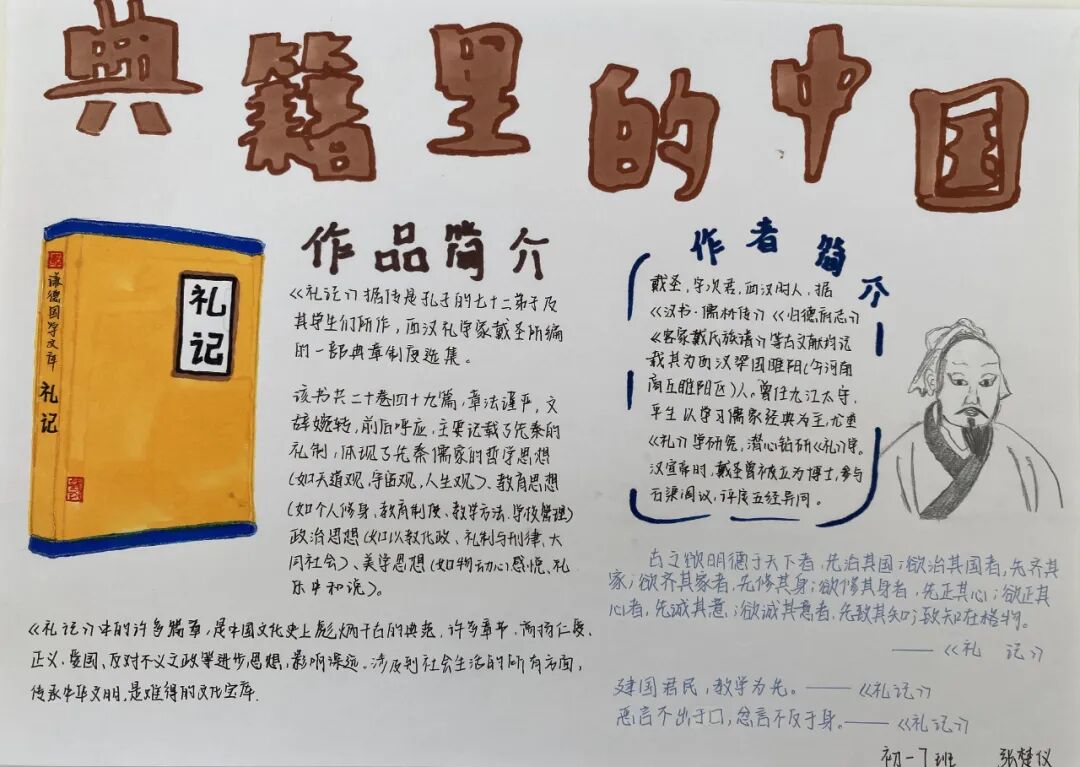 典籍里的中国
谦德国学文库
礼记
礼记
作品简介
《礼记》据传是孔子的七十二弟子及
其学生们所作，西汉礼学家戴圣所编
的一部典章制度选集。
该书共二十卷四十九篇，章法谨严，文
辞婉转，前后呼应，主要记载了先秦的
礼制，体现了先秦儒家的哲学思想
(如天道观、宇宙观、人生观)、教育思想
(如个人修身、教育制度、教学方法、学校管理)
政治思想(如以教化政、礼制与刑律、大
同社会)、美学思想(如物动心感说、礼
乐中和说)。
《礼记》中的许多篇章，是中国文化史上彪炳千古的典范，许多章节，
正义、爱国、反对不义文政等进步思想，影响深远。涉及到社会生活的所有方面，
传承中华文明，是难得的文化宝库.
作者简介
戴圣，字次君，西汉时人，据
《汉书·儒林传》《归德府志》
《客家戴氏族谱》等古文献均记
载其为西汉梁国睢阳(今河南
商丘睢阳区)人。曾任九江太守，
平生以学习儒家经典为主，尤重
《礼》学研究，潜心钻研《礼》学。
汉宣帝时，戴圣曾被立为博士，参与
石渠阁议，评定五经异同。
古之欲明德于天下者，先治其国；欲治其国者，先齐其
家；欲齐其家者，先修其身；欲修其身者，先正其心；欲正其
心者，先诚其意；欲诚其意者，先致其知；致知在格物。
——《礼 记》
建国君民，教学为先。——《礼记》
恶言不出于口，忿言不反于身。——《礼记》
初一7班 张楚仪